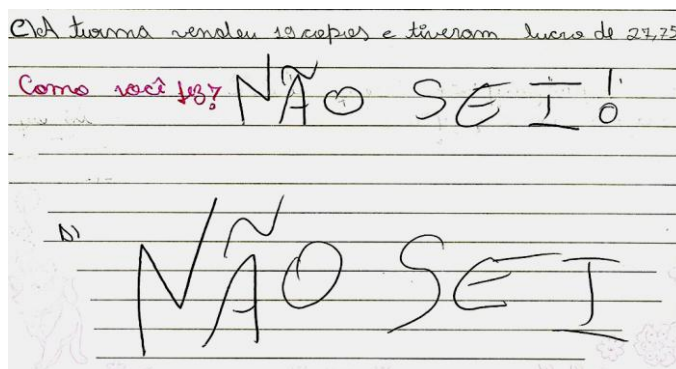 C)A turma vendeu 19 copos e tiveram lucro de 27,75
Como você fez? NÃO SEI!
D) NÃO SEI